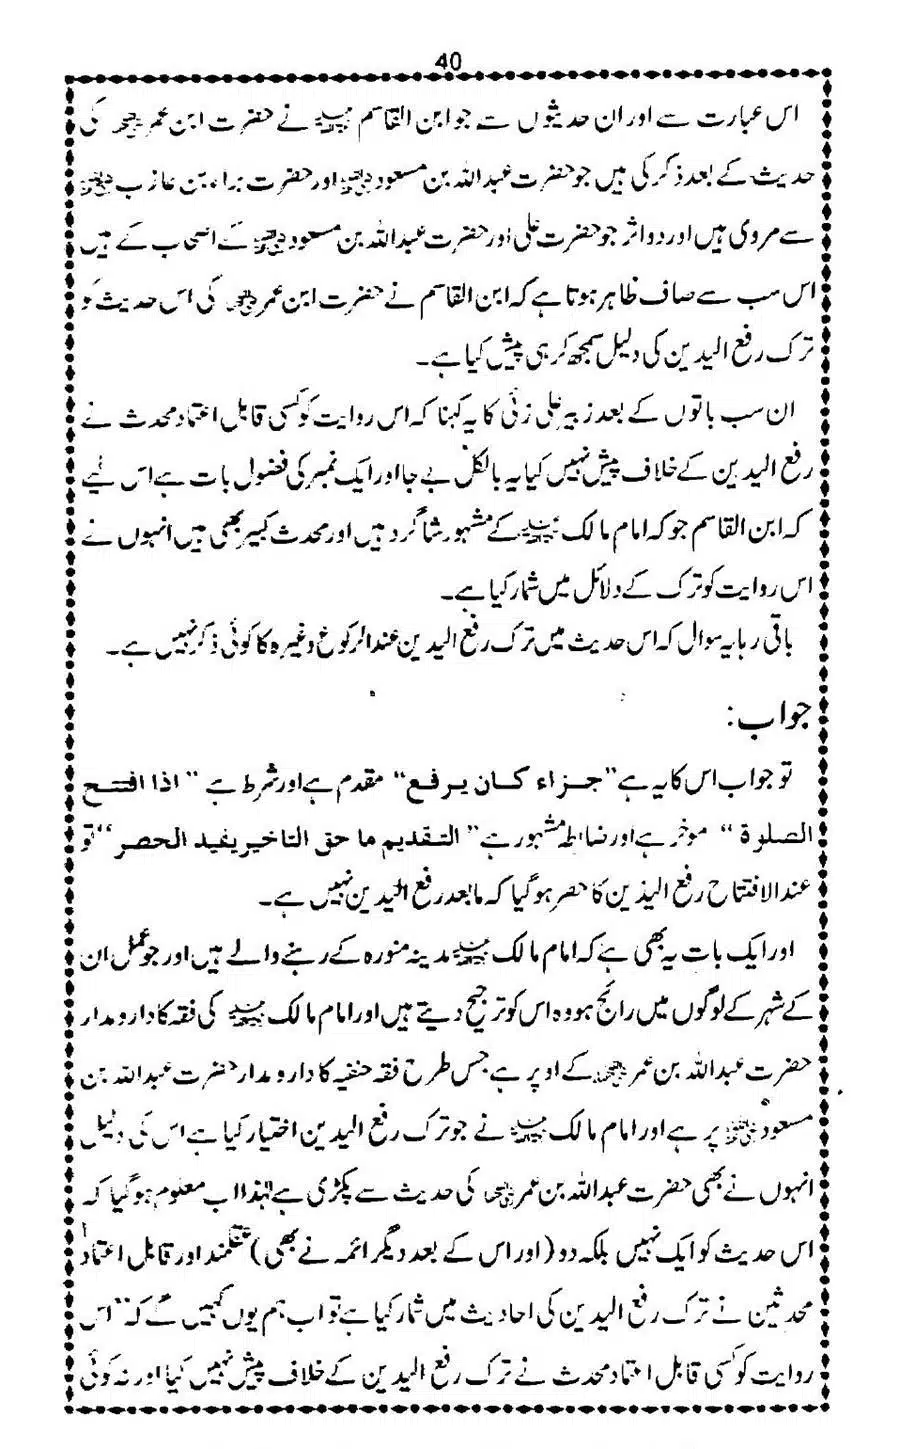 40
اس عبارت سے اور ان حدیثوں سے جو ابن القاسم رحمۃ اللہ علیہ نے حضرت ابن عمر رضی اللہ عنہ کی
حدیث کے بعد ذکر کی ہیں جو حضرت عبداللہ بن مسعود رضی اللہ عنہ اور حضرت براء بن عازب رضی اللہ عنہ
سے مروی ہیں اور دو اثر جو حضرت علی اور حضرت عبداللہ بن مسعود رضی اللہ عنہ کے اصحاب کے ہیں
اس سب سے صاف ظاہر ہوتا ہے کہ ابن القاسم نے حضرت ابن عمر رضی اللہ عنہ کی اس حدیث کو
ترک رفع الیدین کی دلیل سمجھ کر ہی پیش کیا ہے۔
ان سب باتوں کے بعد زبیر علی زئی کا یہ کہنا کہ اس روایت کو کسی قابل اعتماد محدث نے
رفع الیدین کے خلاف پیش نہیں کیا یہ بالکل بے جا اور ایک نمبر کی فضول بات ہے اس لیے
کہ ابن القاسم جو کہ امام مالک رحمۃ اللہ علیہ کے مشہور شاگرد ہیں اور محدث کبیر بھی ہیں انہوں نے
اس روایت کو ترک کے دلائل میں شمار کیا ہے۔
باقی رہا یہ سوال کہ اس حدیث میں ترک رفع الیدین عند الرکوع وغیرہ کا کوئی ذکر نہیں ہے۔
جواب:
تو جواب اس کا یہ ہے "جزاء کان یرفع" مقدم ہے اور شرط ہے "اذا افتتح
الصلوة" موخر ہے اور ضابطہ مشہور ہے "التقدیم ما حق التاخیر یفید الحصر" تو
عند الافتتاح رفع الیدین کا حصر ہو گیا کہ مابعد رفع الیدین نہیں ہے۔
اور ایک بات یہ بھی ہے کہ امام مالک رحمۃ اللہ علیہ مدینہ منورہ کے رہنے والے ہیں اور جو عمل ان
کے شہر کے لوگوں میں رائج ہو وہ اس کو ترجیح دیتے ہیں اور امام مالک رحمۃ اللہ علیہ کی فقہ کا دارومدار
حضرت عبداللہ بن عمر رضی اللہ عنہ کے اوپر ہے جس طرح فقہ حنفیہ کا دارومدار حضرت عبداللہ بن
مسعود رضی اللہ عنہ پر ہے اور امام مالک رحمۃ اللہ علیہ نے جو ترک رفع الیدین اختیار کیا ہے اس کی دلیل
انہوں نے بھی حضرت عبداللہ بن عمر رضی اللہ عنہ کی حدیث سے پکڑی ہے لہٰذا اب معلوم ہو گیا کہ
اس حدیث کو ایک نہیں بلکہ دو (اور اس کے بعد دیگر ائمہ نے بھی) عقلمند اور قابل اعتماد
محدثین نے ترک رفع الیدین کی احادیث میں شمار کیا ہے تو اب ہم یوں کہیں گے کہ "اس
روایت کو کسی قابل اعتماد محدث نے ترک رفع الیدین کے خلاف پیش نہیں کیا اور نہ کوئی